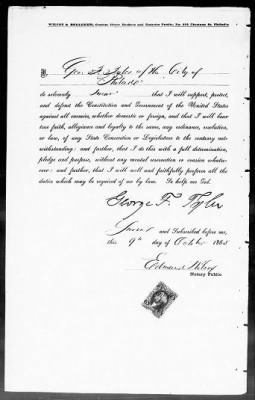 WILCOX & BULLOCK,
I, Geo. F. Tyler of the City of
Philada
do solemnly swear that I will support, protect,
and defend the Constitution and Government of the United States
against all enemies, whether domestic or foreign, and that I will bear
true faith, allegiance and loyalty to the same, any ordinance, resolution,
or law, of any State Convention or Legislature to the contrary not-
withstanding: and further, that I do this with a full determination,
pledge and purpose, without any mental reservation or evasion whatso-
ever: and further, that I will well and faithfully perform all the
duties which may be required of me by law. So help me God.
George F. Tyler
Sworn and Subscribed before me,
this 9th day of October 186
Edmund Wilcox
Notary Public